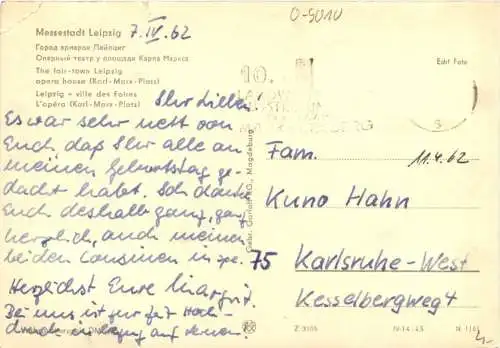 O-5010
Messestadt Leipzig 7. IV. 62
Город ярмарок Лейпциг
Оперный театр у площади Карла Маркса
The fair-town Leipzig
opera house (Karl-Marx-Platz)
Leipzig - ville des Foires
L'opéra (Karl-Marx-Platz)
Ihr Lieben
Es war sehr nett von
Euch, daß Ihr alle an
meinen Geburtstag ge-
dacht habt. Ich danke
Euch deshalb ganz, ganz
herzlich, auch meinen
beiden Cousinen in spe.
Herzlichst Eure Margrit.
Bei uns ist zur Zeit Hoch-
druck in bezug auf
Gebr. Garloff KG., Magdeburg
10.
Echt Foto
Fam.
11.4.62
Kuno Hahn
75 Karlsruhe-West
Kesselbergweg 4
Z 3105
IV-14-45